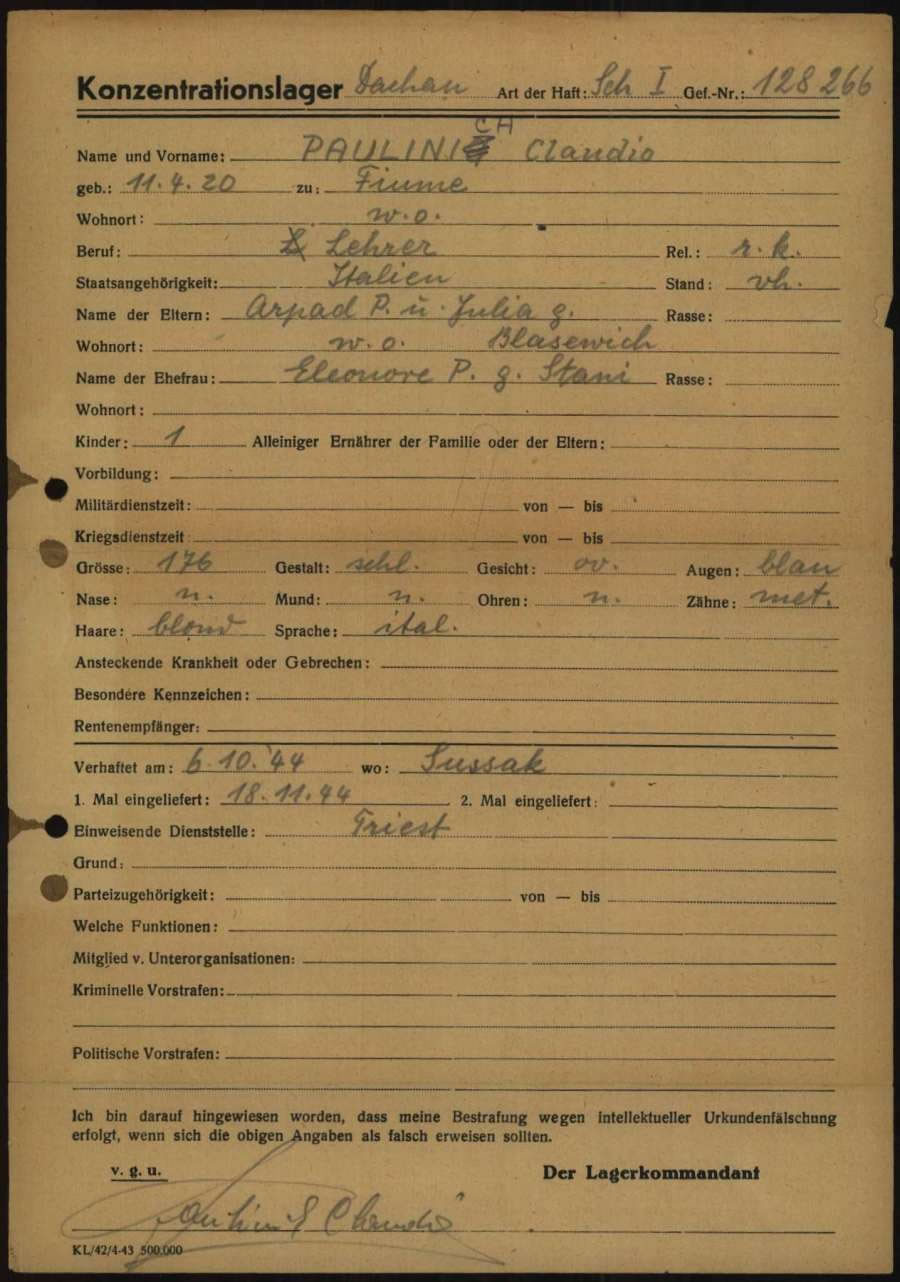 Konzentrationslager Dachau Art der Haft: Sch I Gef.-Nr.: 128266
CH
Name und Vorname: PAULINI Claudio
geb.: 11.4.20 zu: Fiume
Wohnort: w.o.
Beruf: Lehrer Rel.: r.k.
Staatsangehörigkeit: Italien Stand: vh.
Name der Eltern: Arpad P. u. Julia g. Rasse:
Wohnort: w.o. Blasewich
Name der Ehefrau: Eleonore P. g. Stani Rasse:
Wohnort:
Kinder: 1 Alleiniger Ernährer der Familie oder der Eltern:
Vorbildung:
Militärdienstzeit: von — bis
Kriegsdienstzeit: von — bis
Grösse: 176 Gestalt: schl. Gesicht: ov. Augen: blau
Nase: n. Mund: n. Ohren: n. Zähne: met.
Haare: blond Sprache: ital.
Ansteckende Krankheit oder Gebrechen:
Besondere Kennzeichen:
Rentenempfänger:
Verhaftet am: 6.10.44 wo: Sussak
1. Mal eingeliefert: 18.11.44 2. Mal eingeliefert:
Einweisende Dienststelle: Triest
Grund:
Parteizugehörigkeit: von — bis
Welche Funktionen:
Mitglied v. Unterorganisationen:
Kriminelle Vorstrafen:
Politische Vorstrafen:
Ich bin darauf hingewiesen worden, dass meine Bestrafung wegen intellektueller Urkundenfälschung
erfolgt, wenn sich die obigen Angaben als falsch erweisen sollten.
v. g. u. Der Lagerkommandant
Claudio
KL/42/4-43 500.000